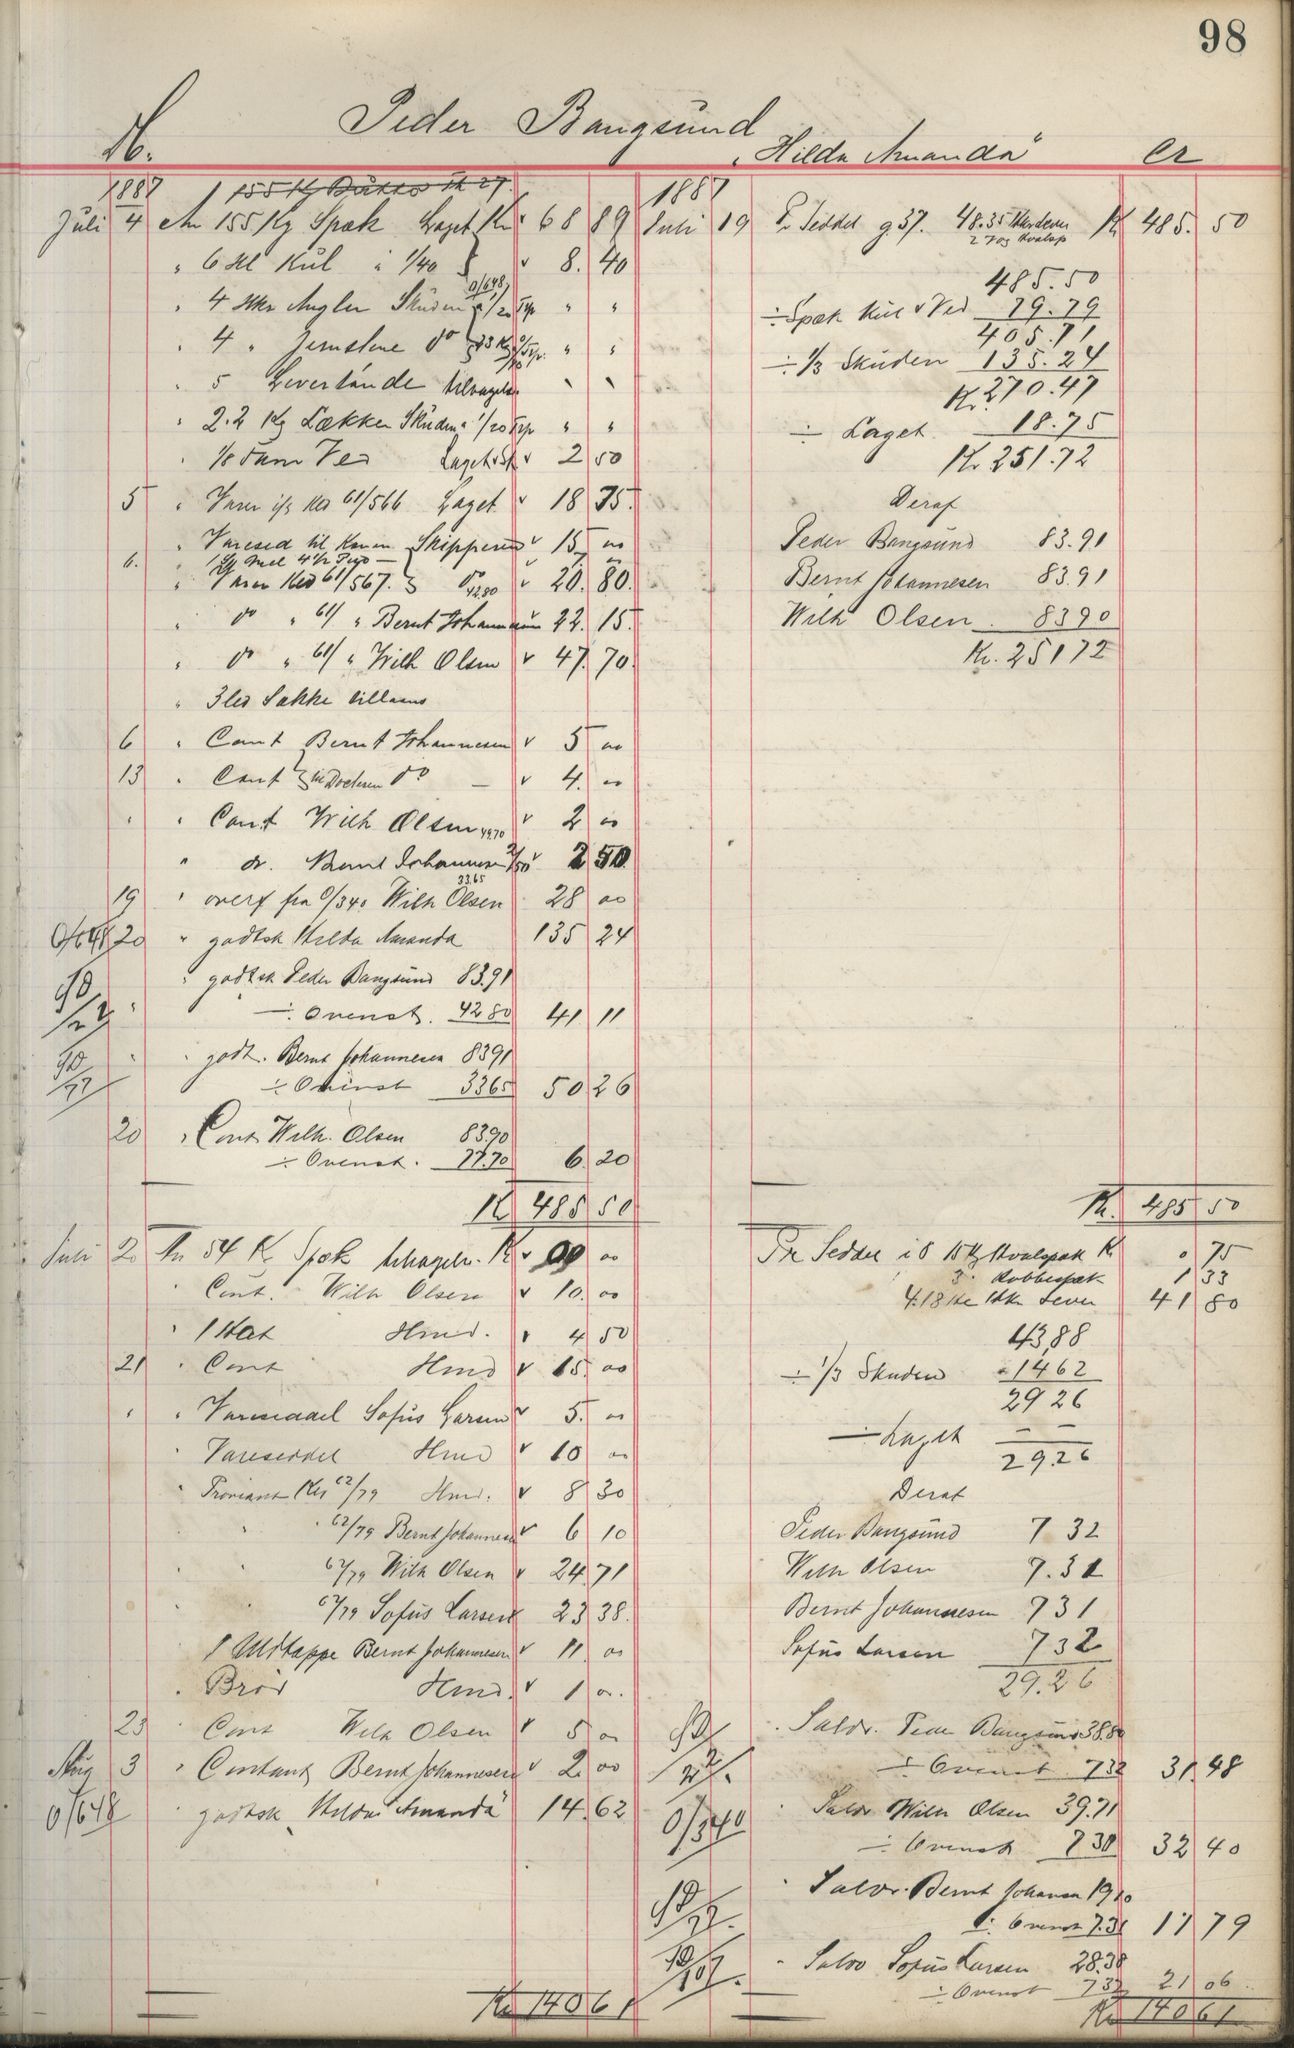 98
Peder Bangsund
D. "Hilda Amanda" Cr
1887
Juli 4 An 155 Kg Spæk Laget Kr 68 89
" 6 Hl Kul à 1/40 8. 40
" 4 Angler Skuden 0/648 1/20 " "
" 4 " Jernstene do " "
" 5 Levertønde tilbagelev. " "
" 2.2 Kg Lækker Skuden 1/20 " "
" 1/8 Favn Ved Laget 2 50
5 " Varer 61/566 Laget 18 75
" Varesed til Konen Skipperen 15 00
6. " Varer Kld 61/567. do 42.80 20. 80.
" do " 61/ " Bernt Johannesen 22. 15.
" do " 61/ " Wilh Olsen 47. 70.
" 3 Sække tillaans
6 " Cont Bernt Johannesen 5 00
13 " Cont do — 4. 00
" " Cont Wilh Olsen 49.70 2 00
" do. Bernt Johannesen 2/50 2 50
33.65
19 " overf fra 0/340 Wilh Olsen 28 00
0/648 20 " godtsk Hilda Amanda 135 24
" godtsk Peder Bangsund 83.91
" ÷ Ovenst. 42 80 41 11
" " godt. Bernt Johannesen 83 91
÷ Ovenst 33 65 50 26
20 " Cont Wilh. Olsen 83.90
÷ Ovenst. 77.70 6. 20
Kr 485 50
1887
Juli 19 Pr Seddel 937. 48.35 Kr 485. 50
485.50
÷ Spæk Kul & Ved 79.79
405.71
÷ 1/3 Skuden 135.24
Kr. 270.47
÷ Laget 18.75
Kr. 251.72
Deraf
Peder Bangsund 83.91
Bernt Johannesen 83.91
Wilh Olsen 83 90
Kr. 251 72
Kr. 485 50
Juli 20 An 54 K. Spæk tilbagelev. Kr 00 00
" Cont. Wilh Olsen 10. 00
" 1 Hat Hmd. 4 50
21 " Cont Hmd 15. 00
" " Vareseddel Sofus Larsen 5. 00
" Vareseddel Hmd 10 00
" Proviant Kld 62/79 Hmd. 8 30
" " 62/79 Bernt Johannesen 6 10
" " 62/79 Wilh Olsen 24. 71
" " 62/79 Sofus Larsen 23 38.
1 Bernt Johannesen 11. 00
" Brød Hmd. 1 00.
23 " Cont Wilh Olsen 5 00
Aug 3 " Contant Bernt Johannesen 2. 00
0/648 " godtsk "Hilda Amanda" 14. 62
Kr 140 61
Pr Seddel 15 Kg Hvalspæk Kr 0 75
3 " Kobbespæk 1 33
4.18 Lever 41 80
43,88
÷ 1/3 Skuden 14 62
29 26
÷ Laget — —
29.26
Deraf
Peder Bangsund 7 32
Wilh Olsen 7.31
Bernt Johannesen 7 31
Sofus Larsen 7 32
29.26
" Saldo. Peder Bangsund 38.80
÷ Ovenst 7 32 31. 48
0/340 " Saldo Wilh Olsen 39.71
÷ Ovenst 7 31 32 40
" Saldo. Bernt Johansen 19 10
÷ Ovenst 7.31 11 79
" Saldo Sofus Larsen 28.38
÷ Ovenst 7 32 21 06
Kr 140 61